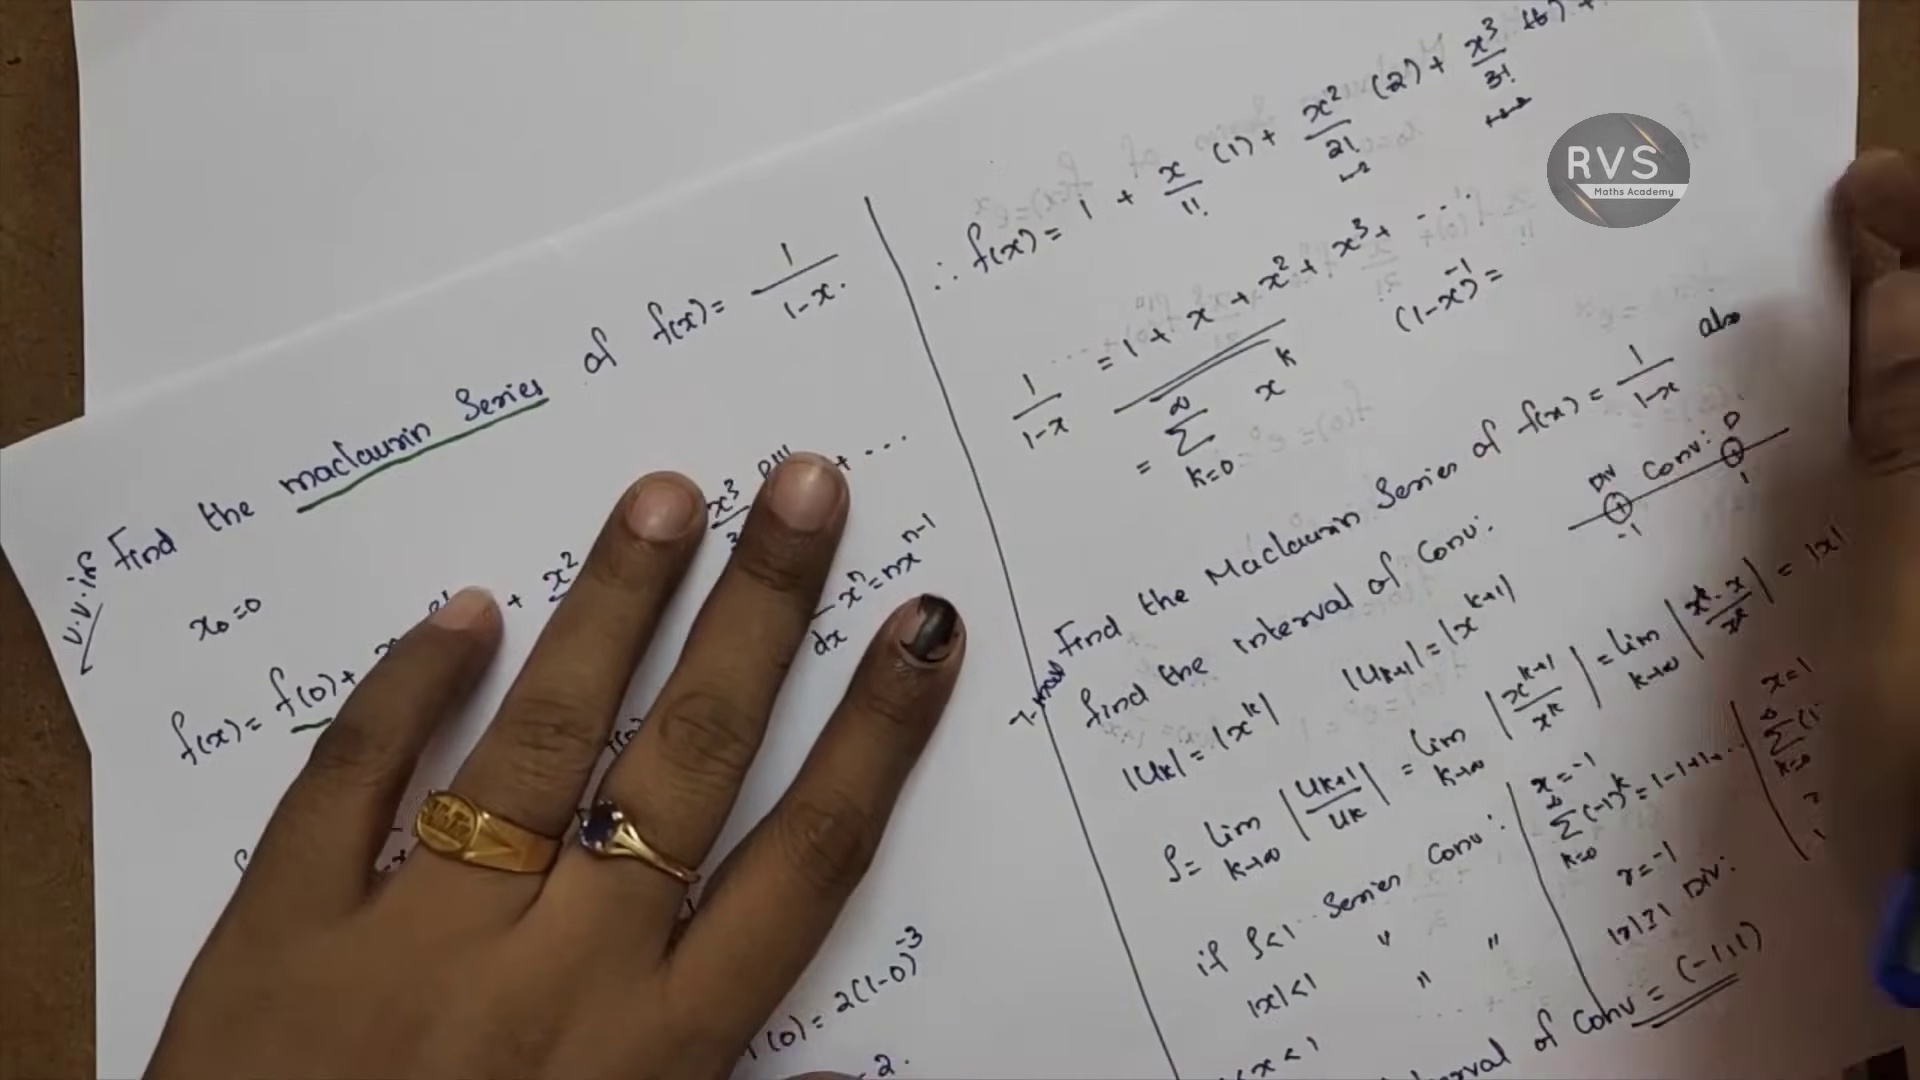 v.v.if Find the maclaurin Series of f(x) = 1/(1-x).
x₀=0
f(x) = f(0) + + x² x³ + ...
d/dx xⁿ = nxⁿ⁻¹
(0) = 2(1-0)⁻³
2.
∴ f(x) = 1 + x/1! (1) + x²/2! (2) + x³/3! (6) +
1/(1-x) = 1 + x + x² + x³ + ....
(1-x)⁻¹ =
= ∞ Σ k=0 xᵏ
Find the Maclaurin Series of f(x) = 1/(1-x) also
find the interval of Conv:
Div Conv: D
-1 1
|uₖ| = |xᵏ| |uₖ₊₁| = |xᵏ⁺¹|
ρ = lim k→∞ |uₖ₊₁/uₖ| = lim k→∞ |xᵏ⁺¹/xᵏ| = lim k→∞ |xᵏ·x/xᵏ| = |x|
if ρ<1 Series Conv:
|x|<1 " "
x<1
x=-1
∞ Σ k=0 (-1)ᵏ = 1-1+1+...
r=-1
|r|≥1 Div:
x=1
∞ Σ k=0 (1
of Conv = (-1,1)
RVS
Maths Academy